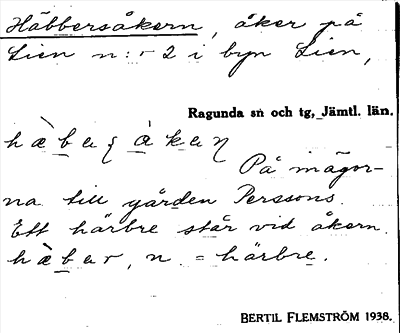 Häbbersåkern, åker på
Lien n:r 2 i byn Lien,
Ragunda sn och tg, Jämtl. län.
På inägor-
na till gården Perssons.
Ett härbre står vid åkern.
hàber, n. = härbre.
BERTIL FLEMSTRÖM 1938.